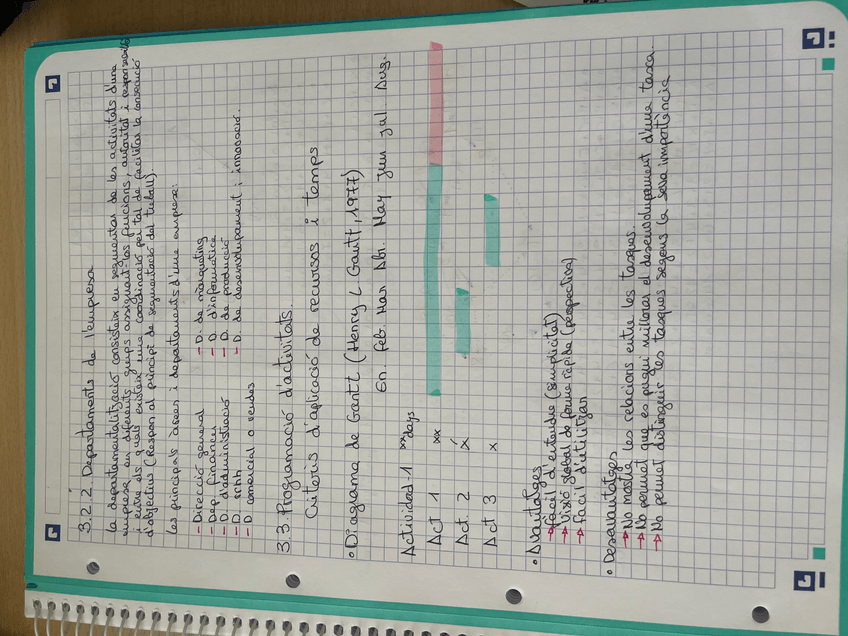 3.2.2. Departaments de l'empresa
La departamentalització consisteix en segmentar les activitats d'una
empresa en diferents grups assignant-los funcions, autoritat i responsabilitat
i entre els quals existeix una coordinació per tal de facilitar la consecució
d'objectius (Respon al principi de segmentació del treball).
Les principals àrees i departaments d'una empresa:
- Direcció general - D. de màrqueting
- Dep. financer - D. d'informàtica
- D. d'administració - D. de producció
- D. rrhh - D. de desenvolupament i innovació.
- D comercial o vendes
3.3. Programació d'activitats.
Criteris d'aplicació de recursos i temps
• Diagrama de Gantt (Henry L Gantt, 1977)
Actividad 1 xx days En Feb. Mar Abr. May Jun Jul Aug.
Act 1 xx
Act. 2 x
Act 3 x
• Avantatges
→ Fàcil d'entendre (simplicitat)
→ Visió global de forma ràpida (perspectiva)
→ Fàcil d'utilitzar
• Desavantatges
→ No mostra les relacions entre les tasques.
→ No permet que es pugui millorar el desenvolupament d'una tasca.
→ No permet distinguir les tasques segons la seva importància